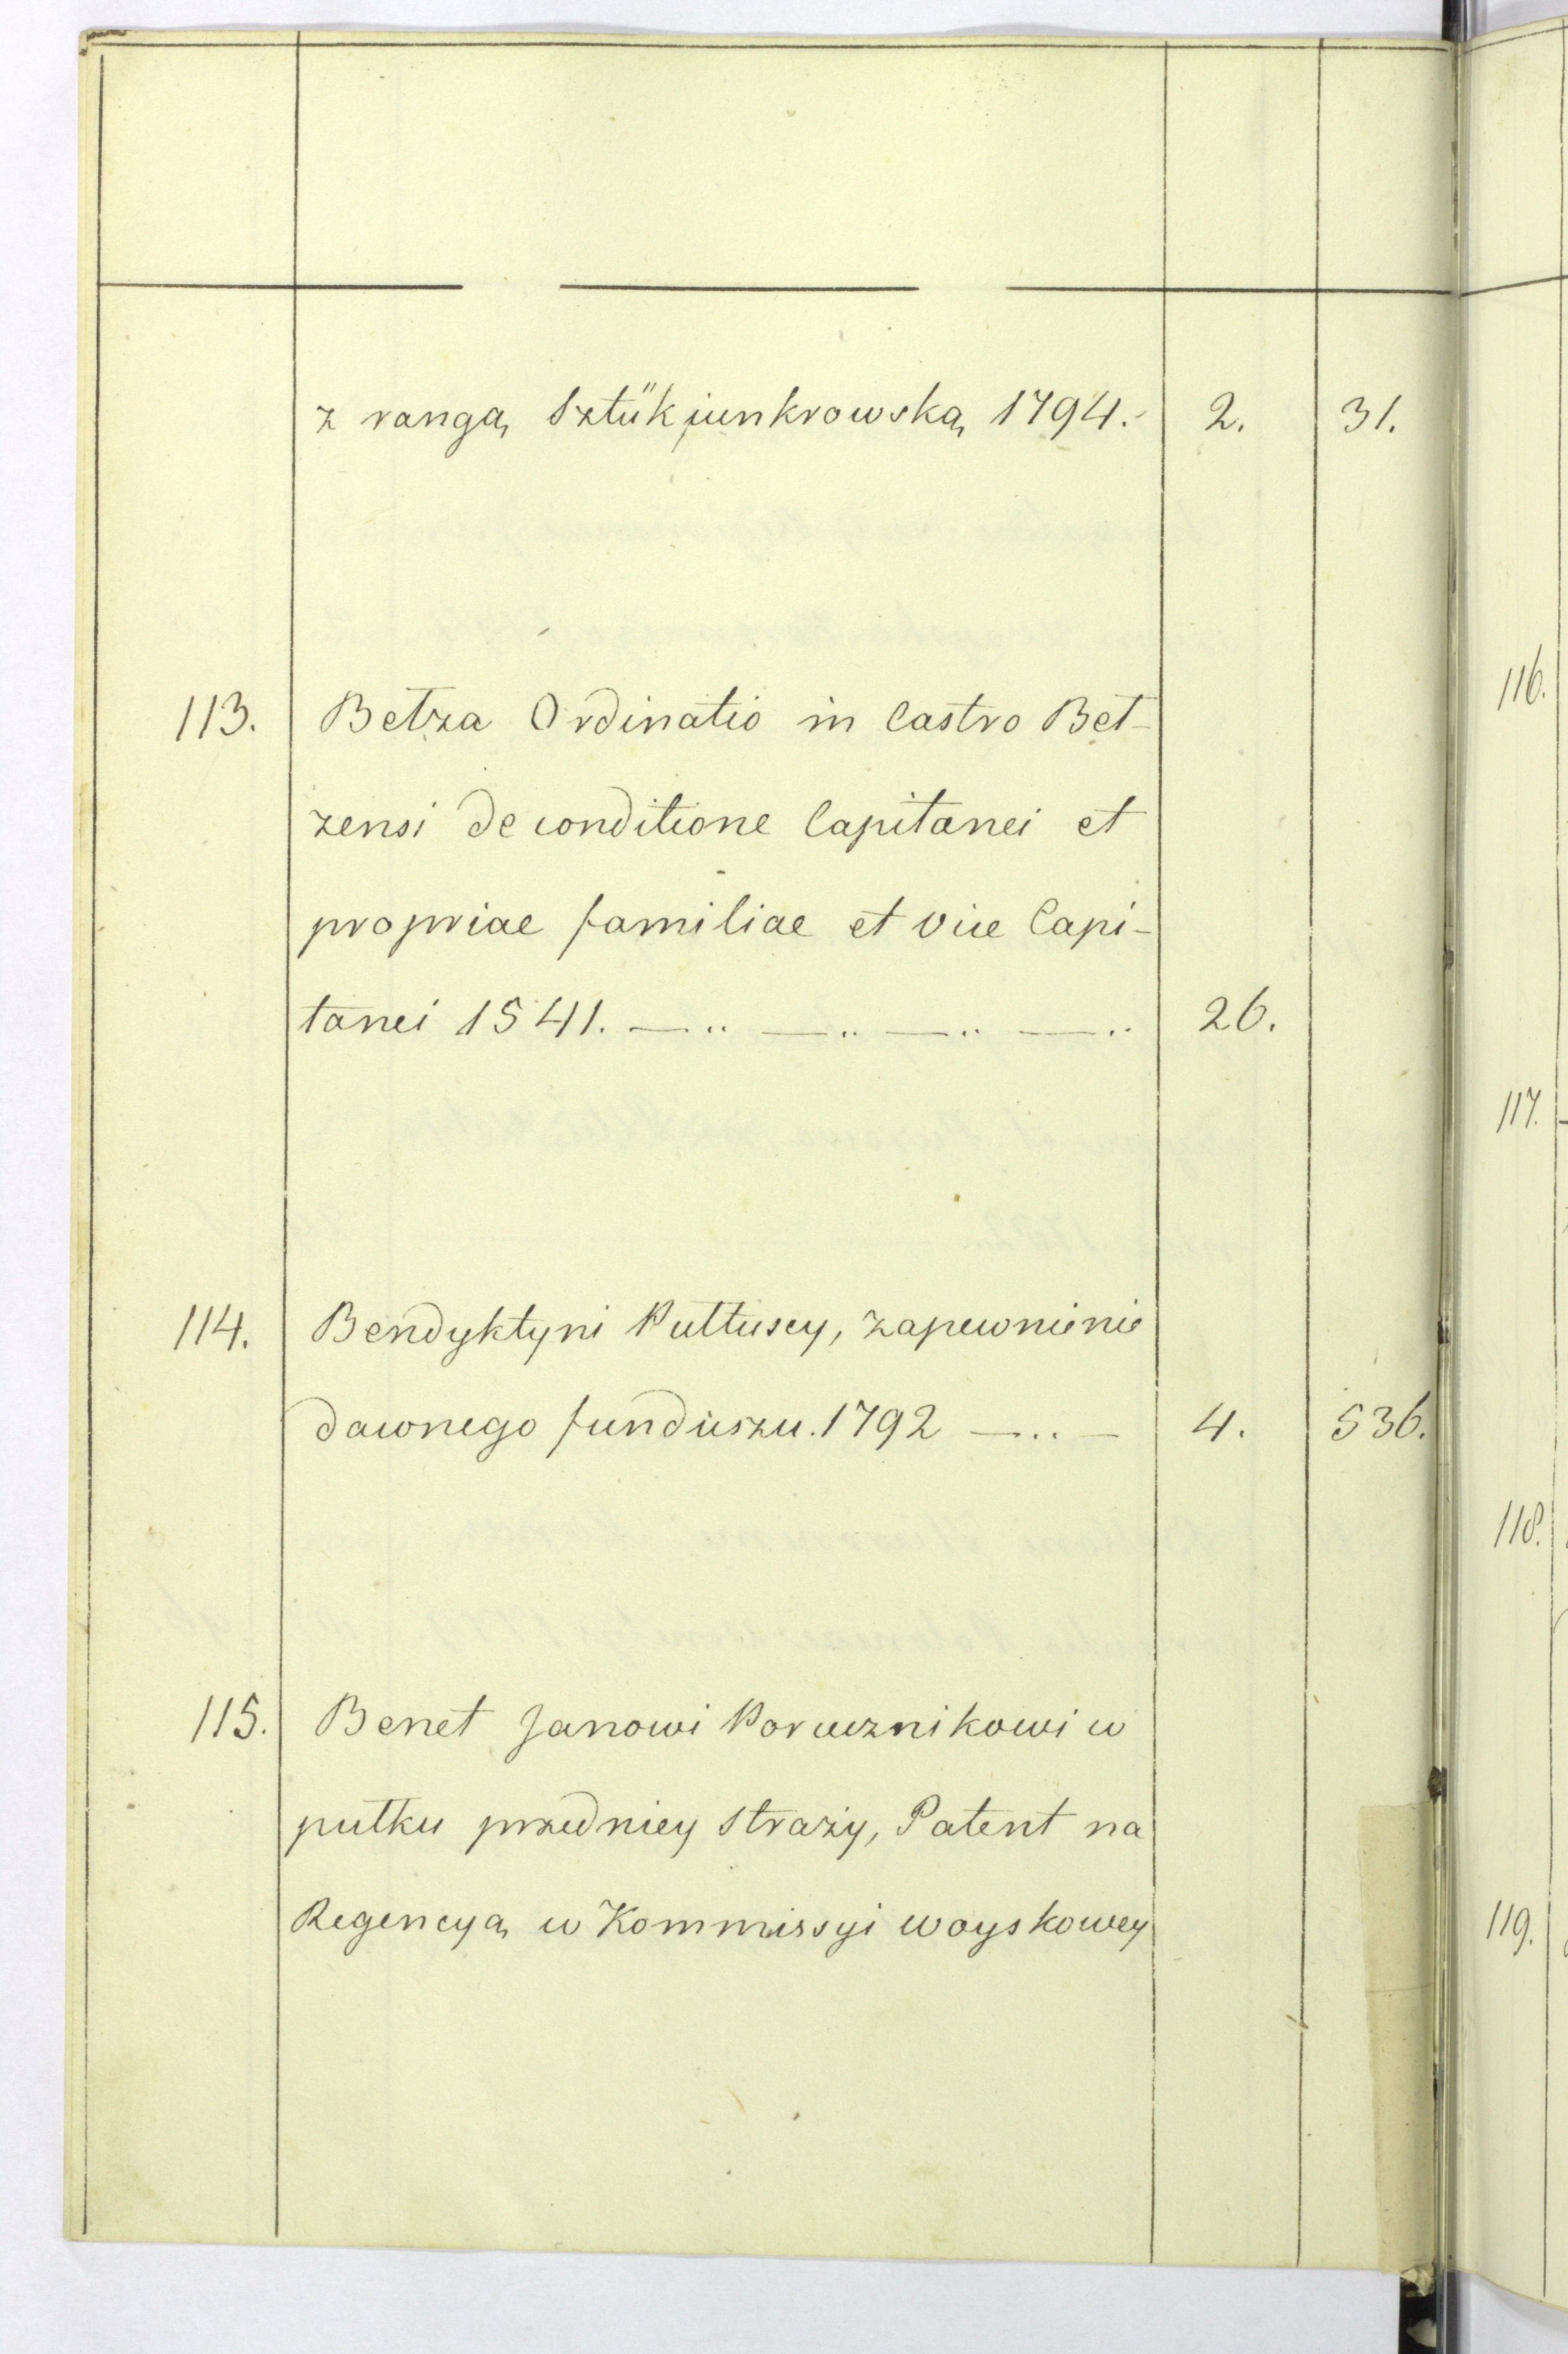 z rangą Sztükjunkrowską 1794. 2. 31.
113. Betza Ordinatio in Castro Bet-
zensi de conditione Capitanei et
propriae familiae et vice Capi-
tanei 1541. —.. —.. —.. —.. 26.
114. Bendyktyni Pułtuscy, zapewnienie
dawnego funduszu. 1792 —..— 4. 536.
115. Benet Janowi Porucznikowi w
pułku przedniey straży, Patent na
Regencyą w Kommissyi woyskowey
116.
117.
118.
119.